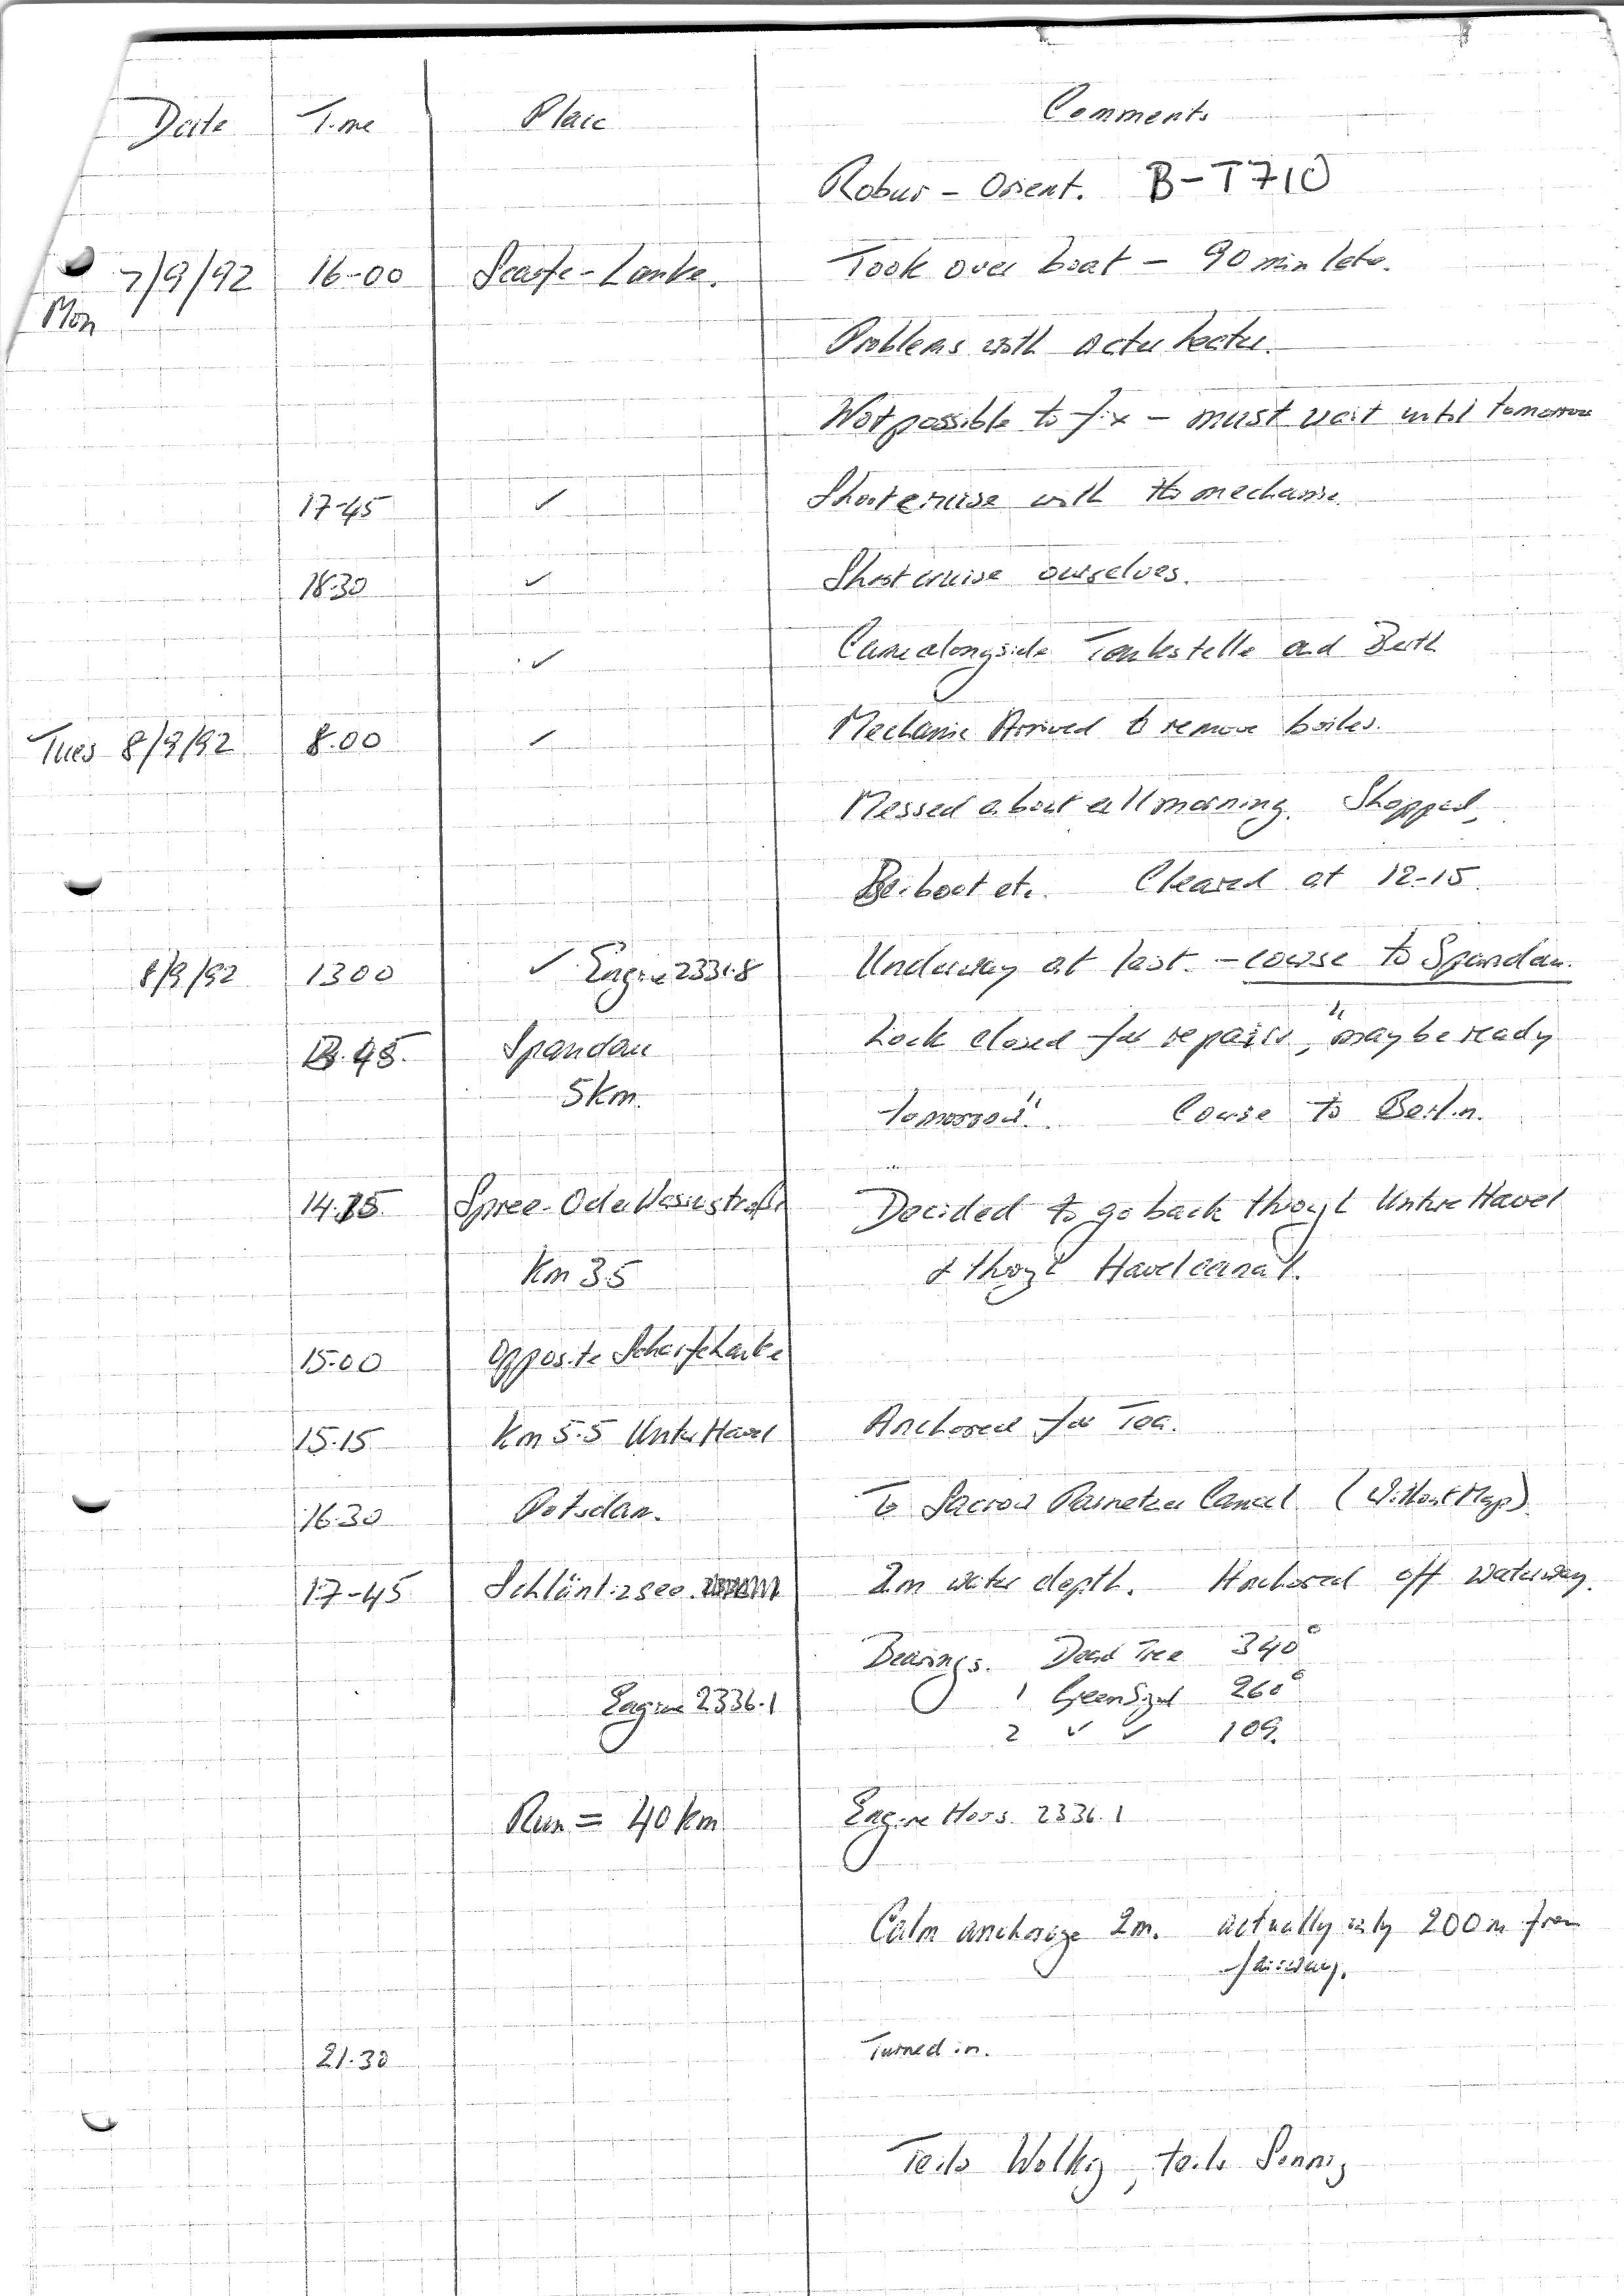 Date Time Place Comments
Robur - Orient. B-T710
7/9/92 16-00 Scarfe-Lanke. Took over boat - 90 min late.
Mon
Problems with water heater.
Not possible to fix - must wait until tomorrow
17-45 ✓ Short cruise with the mechanic.
18.30 ✓ Short cruise ourselves.
✓ Came alongside Tankstelle and Berth
Tues 8/9/92 8.00 ✓ Mechanic Arrived to remove boiler.
Messed about all morning. Shopped,
Beiboot etc. Cleared at 12-15.
8/9/92 1300 ✓ Engine 2331.8 Underway at last. - course to Spandau.
13.45. Spandau Lock closed for repairs, "maybe ready
5km. tomorrow". Course to Berlin.
14.15 Spree-Oder Wasserstraße Decided to go back through Untere Havel
Km 3.5 & through Havelcanal.
15.00 Opposite Scharfe Lanke
15.15 Km 5.5 Unter Havel Anchored for Tea.
16.30 Potsdam. To Sacrow Paretzer Canal (Without Map).
17-45 Schläntizsee. 2m water depth. Anchored off waterway.
Bearings. Dead Tree 340°
Engine 2336.1 1 Green Signal 260°
2 ✓ ✓ 109.
Run = 40km Engine Hours. 2336.1
Calm anchorage 2m. actually only 200m from
fairway.
21.30 Turned in.
Teils Wolkig, teils Sonnig